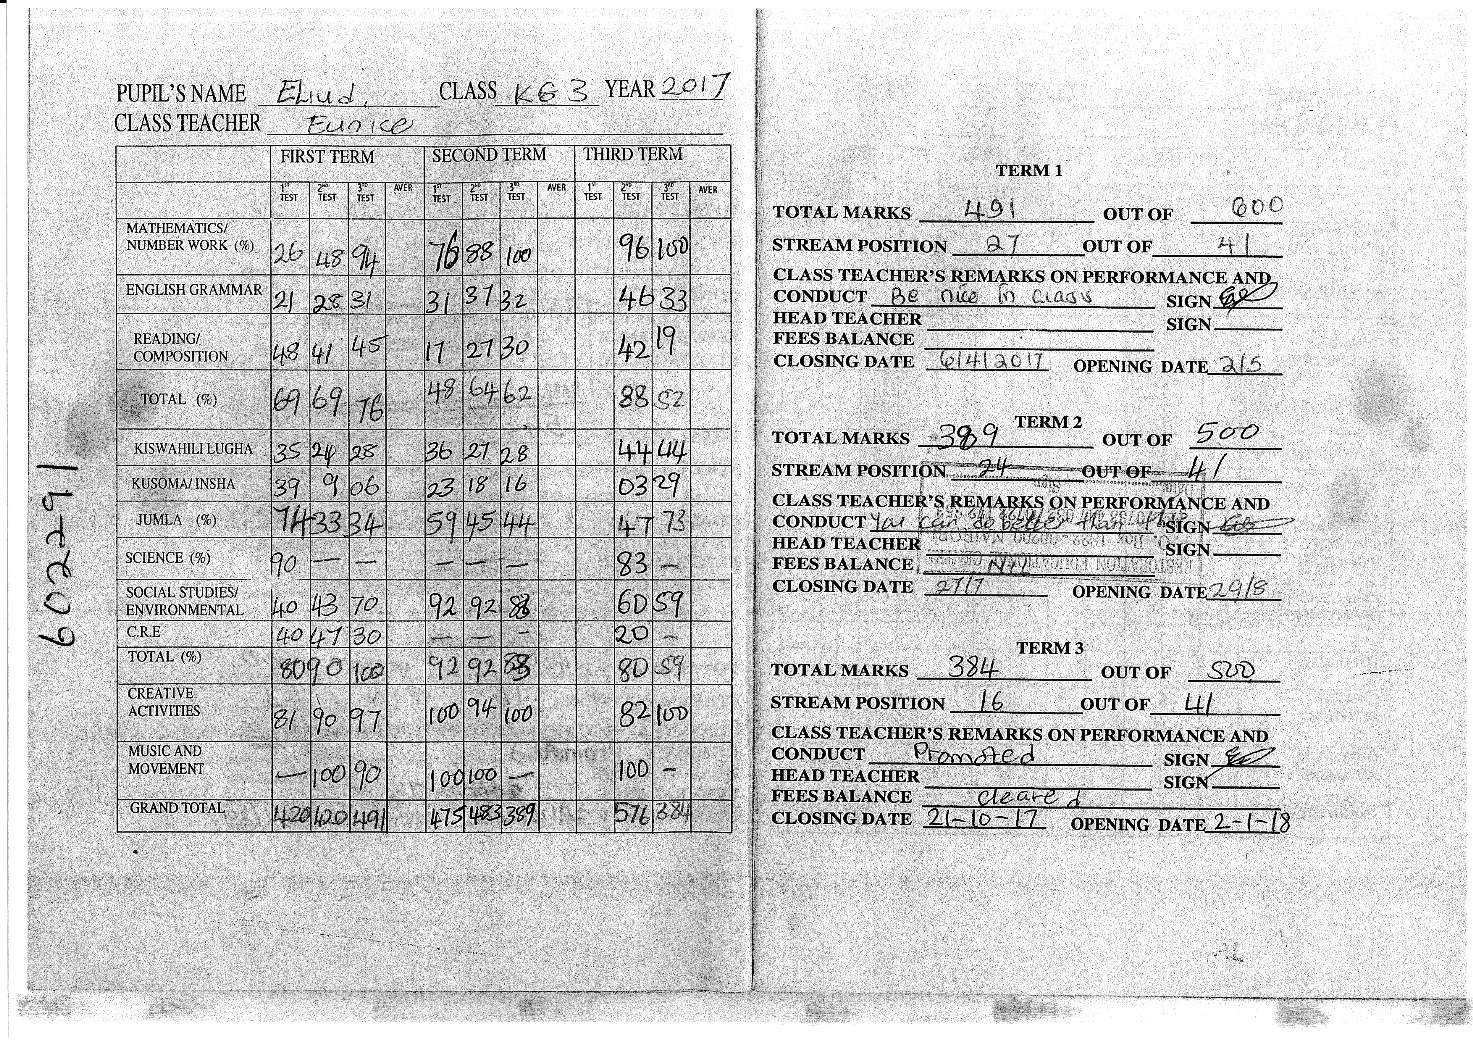 PUPIL'S NAME Eliud. CLASS KG 3 YEAR 2017
CLASS TEACHER Eunice
FIRST TERM SECOND TERM THIRD TERM
1ST TEST 2ND TEST 3RD TEST AVER 1ST TEST 2ND TEST 3RD TEST AVER 1ST TEST 2ND TEST 3RD TEST AVER
MATHEMATICS/
NUMBER WORK (%) 26 48 94 76 88 100 96 100
ENGLISH GRAMMAR 21 28 31 31 37 32 46 33
READING/
COMPOSITION 48 41 45 17 27 30 42 19
TOTAL (%) 69 69 76 48 64 62 88 52
KISWAHILI LUGHA 35 24 28 36 27 28 44 44
KUSOMA/ INSHA 39 9 06 23 18 16 03 29
JUMLA (%) 74 33 34 59 45 44 47 73
SCIENCE (%) 90 — — — — — 83 —
SOCIAL STUDIES/
ENVIRONMENTAL 40 43 70 92 92 88 60 59
C.R.E 40 47 30 — — — 20 —
TOTAL (%) 80 90 100 92 92 80 59
CREATIVE
ACTIVITIES 81 90 97 100 94 100 82 100
MUSIC AND
MOVEMENT — 100 90 100 100 — 100 —
GRAND TOTAL 420 420 491 475 483 389 576 384
602291
TERM 1
TOTAL MARKS 491 OUT OF 600
STREAM POSITION 27 OUT OF 41
CLASS TEACHER'S REMARKS ON PERFORMANCE AND
CONDUCT Be nice in class SIGN
HEAD TEACHER SIGN
FEES BALANCE
CLOSING DATE 6/4/2017 OPENING DATE 2/5
TERM 2
TOTAL MARKS 389 OUT OF 500
STREAM POSITION 24 OUT OF 41
CLASS TEACHER'S REMARKS ON PERFORMANCE AND
CONDUCT You can do better than this SIGN
HEAD TEACHER SIGN
FEES BALANCE Nil
CLOSING DATE 27/7 OPENING DATE 29/8
TERM 3
TOTAL MARKS 384 OUT OF 500
STREAM POSITION 16 OUT OF 41
CLASS TEACHER'S REMARKS ON PERFORMANCE AND
CONDUCT Promoted SIGN
HEAD TEACHER SIGN
FEES BALANCE cleared
CLOSING DATE 21-10-17 OPENING DATE 2-1-18